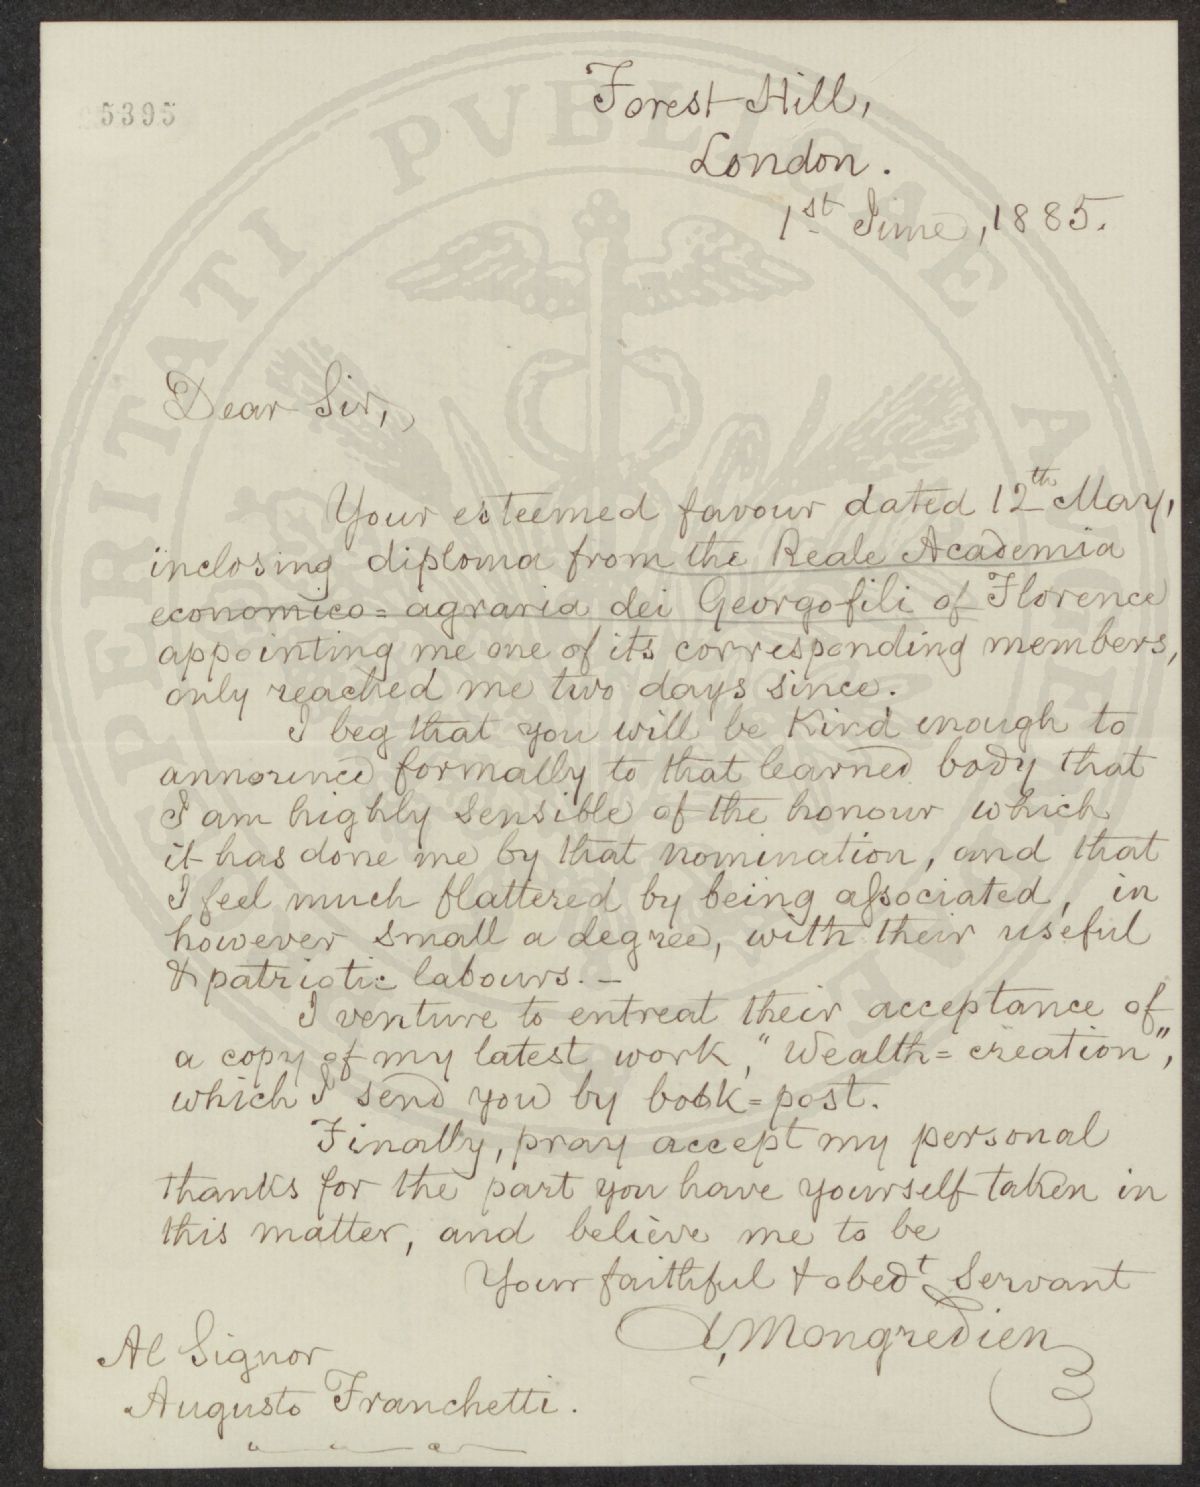 5395
Forest Hill,
London.
1st June, 1885.
Dear Sir,
Your esteemed favour dated 12th May,
inclosing diploma from the Reale Academia
economico=agraria dei Georgofili of Florence
appointing me one of its corresponding members,
only reached me two days since.
I beg that you will be kind enough to
announce formally to that learned body that
I am highly sensible of the honour which
it has done me by that nomination, and that
I feel much flattered by being associated, in
however small a degree, with their useful
& patriotic labours.—
I venture to entreat their acceptance of
a copy of my latest work, "Wealth=creation",
which I send you by book=post.
Finally, pray accept my personal
thanks for the part you have yourself taken in
this matter, and believe me to be
Your faithful & obedt Servant
A. Mongredien
Al Signor
Augusto Franchetti.
PROSPERITATI PVBLICAE AVGENDAE